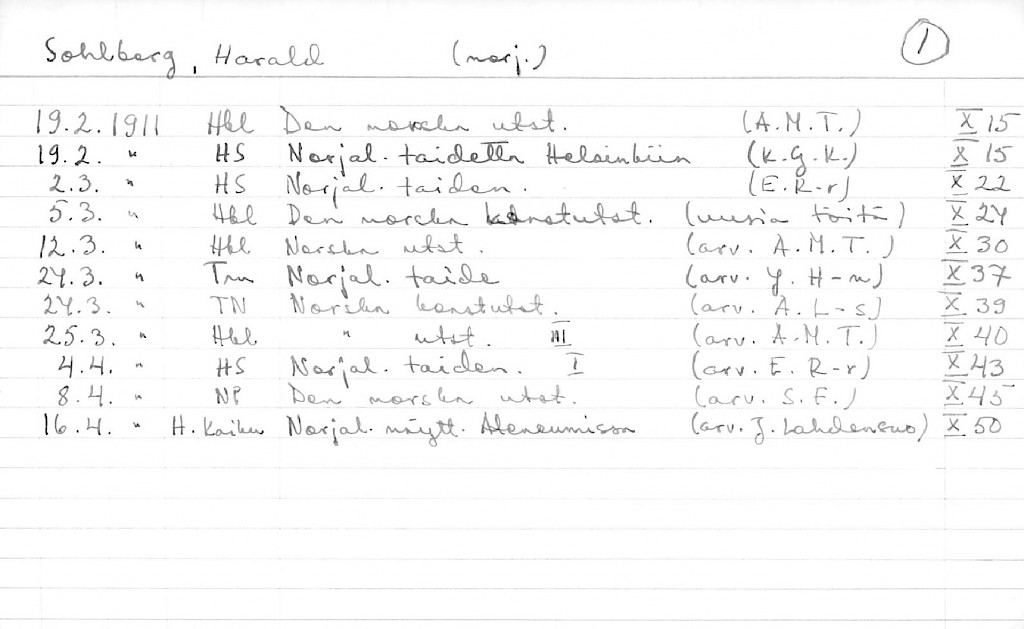 Sohlberg, Harald (norj.) 1
19.2.1911 Hbl Den norska utst. (A.M.T.) X 15
19.2. " HS Norjal. taidetta Helsinkiin (K.G.K.) X 15
2.3. " HS Norjal. taiden. (E.R-r) X 22
5.3. " Hbl Den norska konstutst. (uusia töitä) X 24
12.3. " Hbl Norska utst. (arv. A.M.T.) X 30
24.3. " Tm Norjal. taide (arv. Y. H-n) X 37
24.3. " TN Norska konstutst. (arv. A. L-s) X 39
25.3. " Hbl " utst. III (arv. A.M.T.) X 40
4.4. " HS Norjal. taiden. I (arv. E. R-r) X 43
8.4. " NP Den norska utst. (arv. S.F.) X 45
16.4. " H. Kaiku Norjal. näytt. Ateneumissa (arv. J. Lahdensuo) X 50